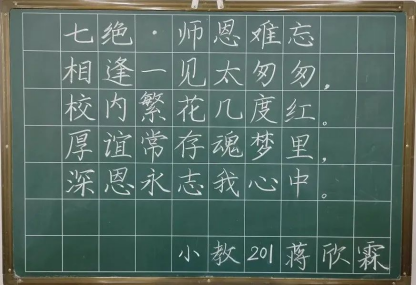 七绝·师恩难忘
相逢一见太匆匆，
校内繁花几度红。
厚谊常存魂梦里，
深恩永志我心中。
小教201蒋欣霖